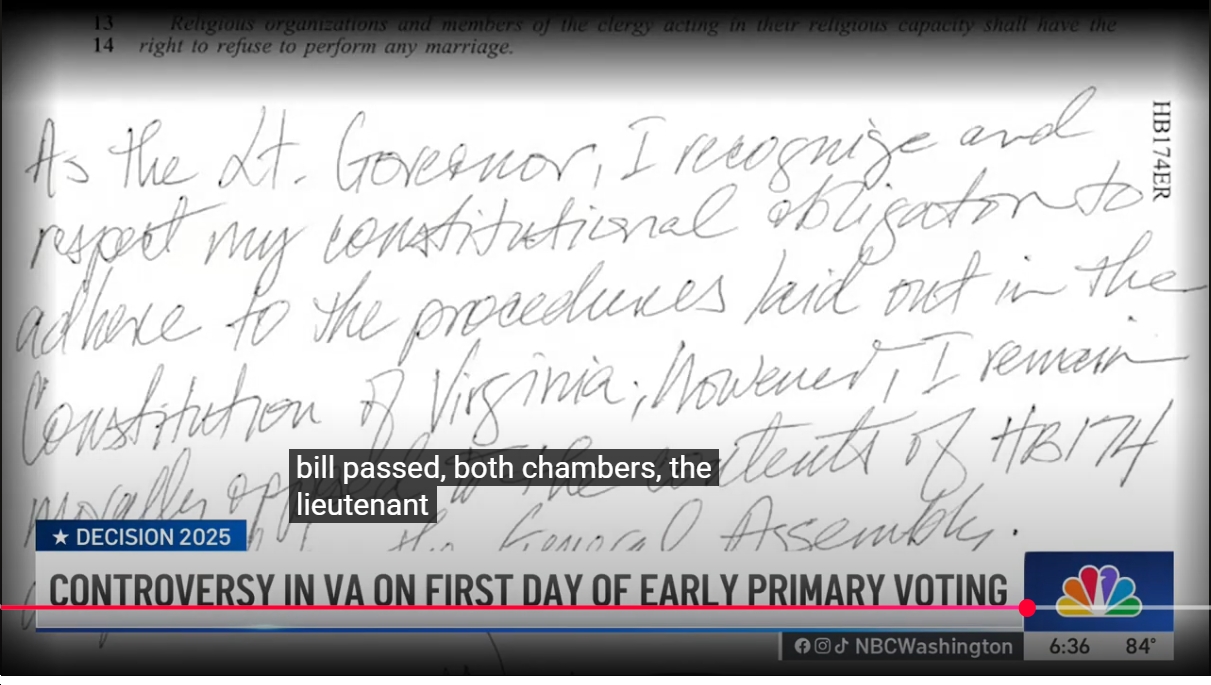 13 Religious organizations and members of the clergy acting in their religious capacity shall have the
14 right to refuse to perform any marriage.
HB174ER
As the Lt. Governor, I recognize and
respect my constitutional obligation to
adhere to the procedures laid out in the
Constitution of Virginia; however, I remain
morally to the contents of HB174
the General Assembly.
bill passed, both chambers, the
lieutenant
★ DECISION 2025
CONTROVERSY IN VA ON FIRST DAY OF EARLY PRIMARY VOTING
NBCWashington
6:36 84°